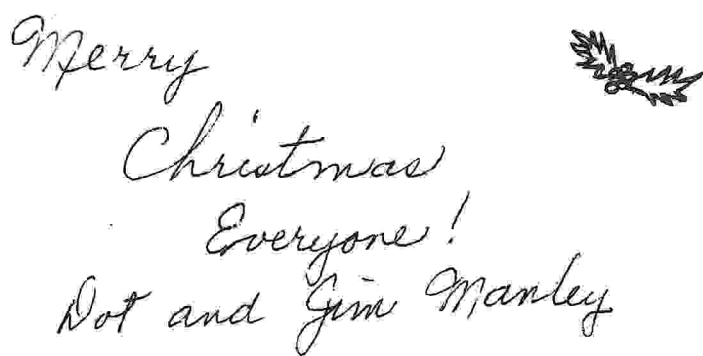 Merry
Christmas
Everyone!
Dot and Jim Manley